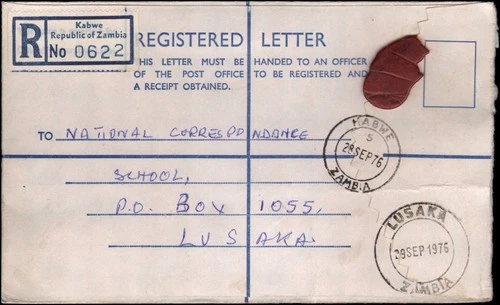 Kabwe
Republic of Zambia
R No 0622
REGISTERED LETTER
THIS LETTER MUST BE HANDED TO AN OFFICER
OF THE POST OFFICE TO BE REGISTERED AND
A RECEIPT OBTAINED.
TO NATIONAL CORRESPONDANCE
SCHOOL,
P.O. BOX 1055,
LUSAKA.
KABWE
5
28 SEP 76
ZAMBIA
LUSAKA
SEP 1976
ZAMBIA